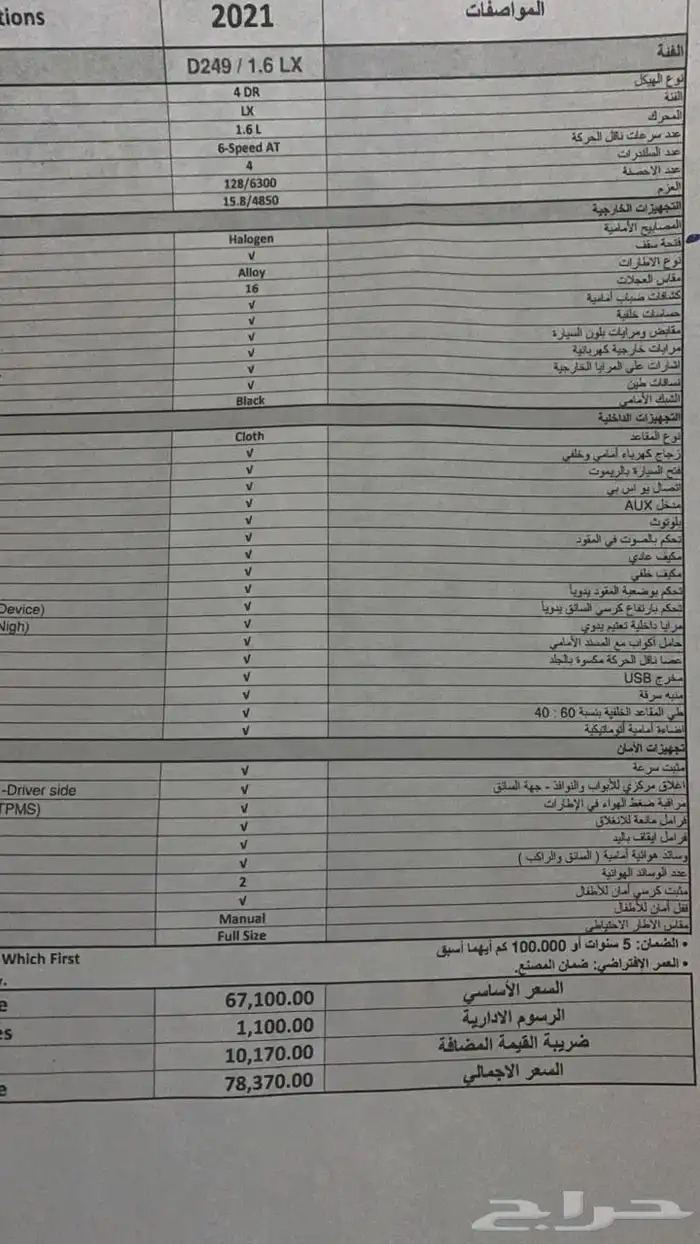 tions 2021 المواصفات
D249 / 1.6 LX الفئة
4 DR نوع الهيكل
LX الفئة
1.6 L المحرك
6-Speed AT عدد سرعات ناقل الحركة
4 عدد السلندرات
128/6300 عدد الاحصنة
15.8/4850 العزم
التجهيزات الخارجية
Halogen المصابيح الأمامية
√ فتحة سقف
Alloy نوع الاطارات
16 مقاس العجلات
√ كشافات ضباب أمامية
√ حساسات خلفية
√ مقابض ومرايات بلون السيارة
√ مرايات خارجية كهربائية
√ اشارات على المرايا الخارجية
√ لساقات طين
Black الشبك الأمامي
التجهيزات الداخلية
Cloth نوع المقاعد
√ زجاج كهرباء أمامي وخلفي
√ فتح السيارة بالريموت
√ اتصال يو اس بي
√ مدخل AUX
√ بلوتوث
√ تحكم بالصوت في المقود
√ مكيف عادي
√ مكيف خلفي
√ تحكم بوضعية المقود يدوياً
Device) √ تحكم بارتفاع كرسي السائق يدوياً
Nigh) √ مرايا داخلية تعتيم يدوي
√ حامل أكواب مع المسند الأمامي
√ عصا ناقل الحركة مكسوة بالجلد
√ مخرج USB
√ منبه سرقة
√ طي المقاعد الخلفية بنسبة 60 : 40
√ إضاءة أمامية أتوماتيكية
تجهيزات الأمان
√ مثبت سرعة
-Driver side √ اغلاق مركزي للأبواب والنوافذ - جهة السائق
TPMS) √ مراقبة ضغط الهواء في الإطارات
√ فرامل مانعة للانغلاق
√ فرامل ايقاف باليد
√ وسائد هوائية أمامية ( السائق والراكب )
2 عدد الوسائد الهوائية
√ مثبت كرسي أمان للأطفال
Manual قفل أمان للأطفال
Full Size مقاس الاطار الاحتياطي
Which First • الضمان: 5 سنوات أو 100.000 كم أيهما أسبق
• العمر الافتراضي: ضمان المصنع.
e 67,100.00 السعر الأساسي
es 1,100.00 الرسوم الادارية
10,170.00 ضريبة القيمة المضافة
e 78,370.00 السعر الاجمالي
حراج